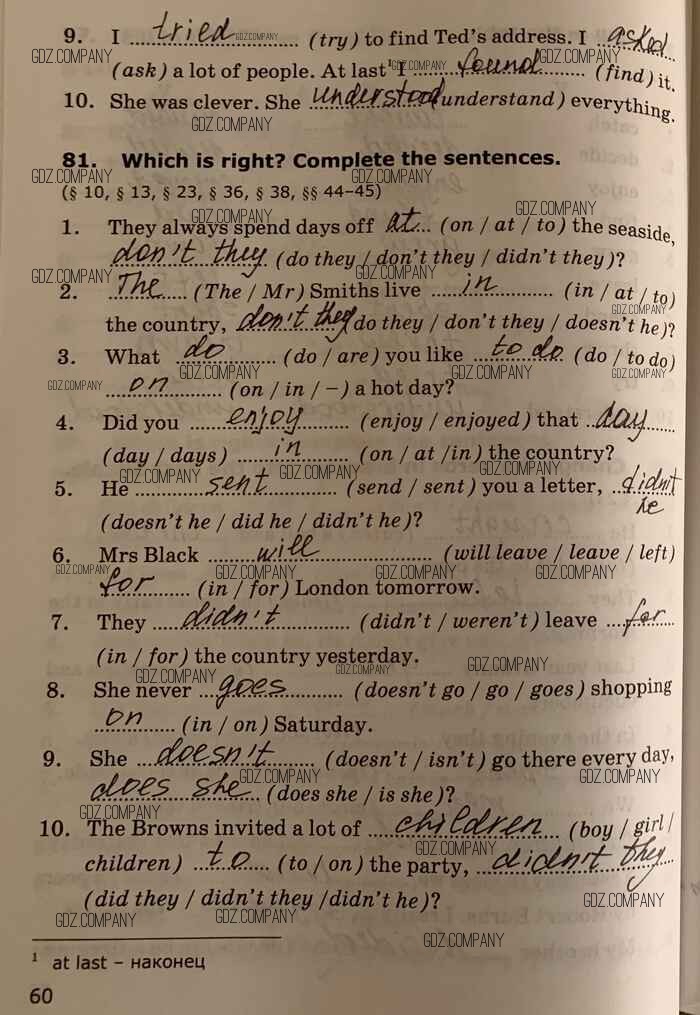 9. I tried (try) to find Ted's address. I asked
(ask) a lot of people. At last¹ I found (find) it.
10. She was clever. She understood (understand) everything.
81. Which is right? Complete the sentences.
(§ 10, § 13, § 23, § 36, § 38, §§ 44–45)
1. They always spend days off at (on / at / to) the seaside,
don't they (do they / don't they / didn't they)?
2. The (The / Mr) Smiths live in (in / at / to)
the country, don't they (do they / don't they / doesn't he)?
3. What do (do / are) you like to do (do / to do)
on (on / in / –) a hot day?
4. Did you enjoy (enjoy / enjoyed) that day
(day / days) in (on / at /in) the country?
5. He sent (send / sent) you a letter, didn't
he
(doesn't he / did he / didn't he)?
6. Mrs Black will (will leave / leave / left)
for (in / for) London tomorrow.
7. They didn't (didn't / weren't) leave for
(in / for) the country yesterday.
8. She never goes (doesn't go / go / goes) shopping
on (in / on) Saturday.
9. She doesn't (doesn't / isn't) go there every day,
does she (does she / is she)?
10. The Browns invited a lot of children (boy / girl /
children) to (to / on) the party, didn't they
(did they / didn't they /didn't he)?
¹ at last – наконец
60
GDZ.COMPANY